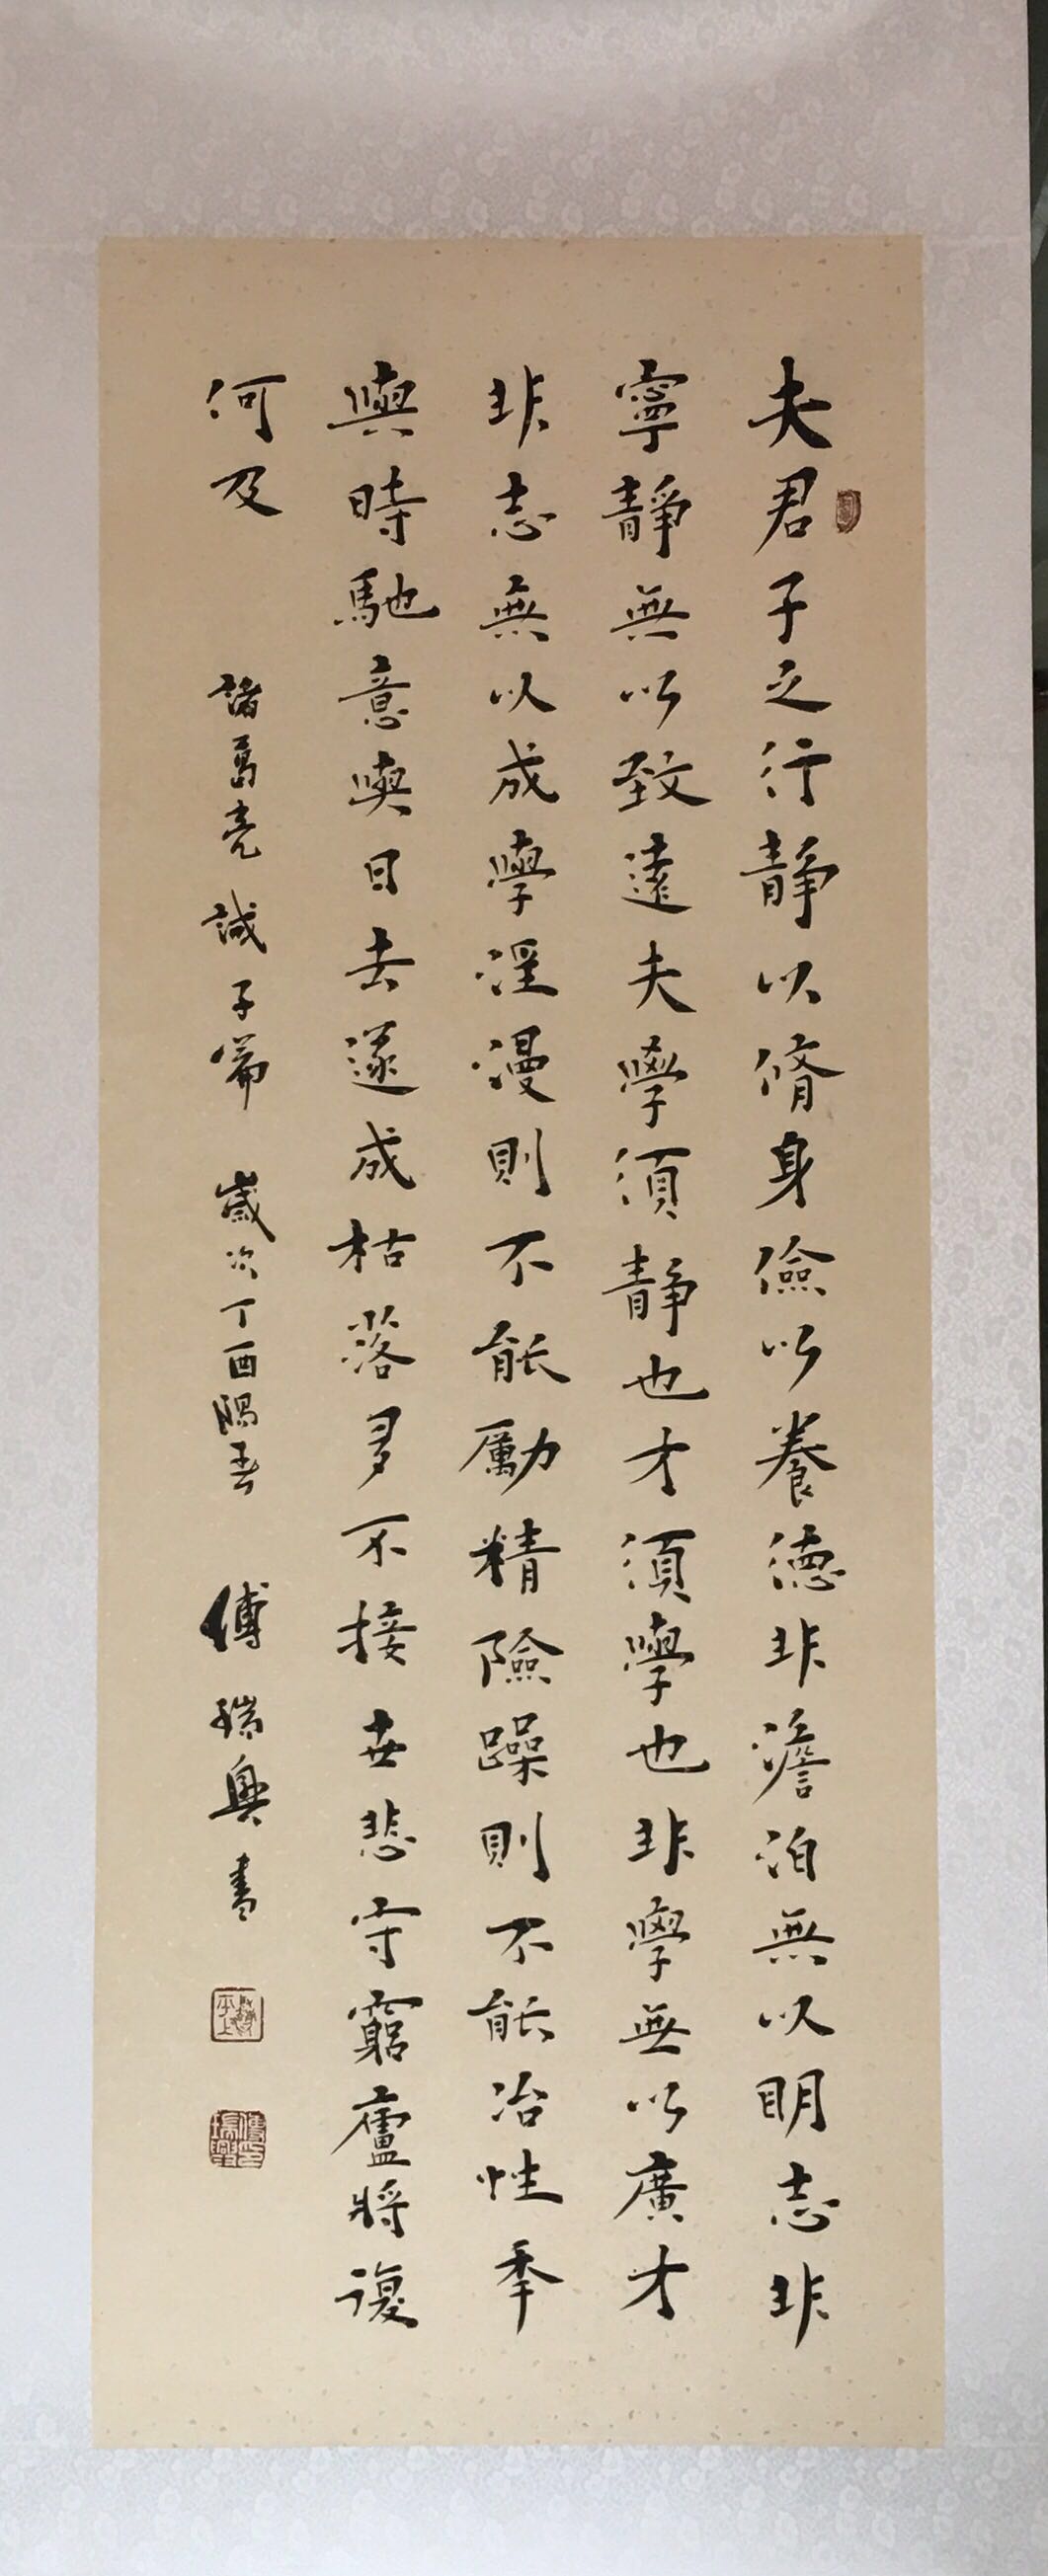 夫君子之行静以脩身儉以養德非澹泊無以明志非
寧靜無以致遠夫學須静也才須學也非學無以廣才
非志無以成學淫漫則不能勵精險躁則不能冶性秊
與時馳意與日去遂成枯落多不接世悲守窮廬將復
何及
諸葛亮誡子篇 歲次丁酉陽春 傅瑞興書